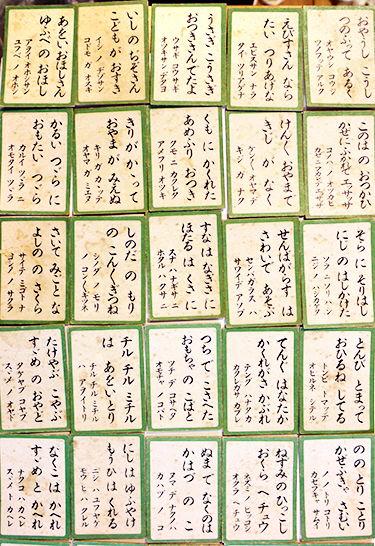 おやうし こうし
つのふつて あるく
オヤウシ コウシ
ツノフツテ アルク
えびすさん なら
たい つりあげな
エビスサン ナラ
タイ ツリアゲナ
うさぎ こうさぎ
おつきさん でたよ
ウサギ コウサギ
オツキサン デタヨ
いしの ぢざうさん
こどもが おすき
イシノ ヂザウサン
コドモガ オスキ
あをい おほしさん
ゆふべの おほし
アヲイ オホシサン
ユフベノ オホシ
このはの おつかひ
かぜにふかれて
コノハノ オツカヒ
カゼニフカレテ
おやまで
きじが なく
オヤマデ
キジガ ナク
くもに かくれた
あめふり おつき
クモニ カクレタ
アメフリ オツキ
きりが かゝつて
おやまが みえぬ
キリガ カヽツテ
オヤマガ ミエヌ
かるい つゞらに
おもたい つゞら
カルイ ツヾラニ
オモタイ ツヾラ
そらに そりはし
にじの はしかけた
ソラニ ソリハシ
ニジノ ハシカケタ
せんばがらすは
さわいで あそぶ
センバガラスハ
サワイデ アソブ
すなはなぎさに
ほたるは くさに
スナハナギサニ
ホタルハ クサニ
しのだの もり
の こんこぎつね
シノダノ モリ
ノ コンコギツネ
さいた みごとな
よしのの さくら
サイタ ミゴトナ
ヨシノノ サクラ
とんび とまつて
おひるね してる
トンビ トマツテ
オヒルネ シテル
てんぐ はなたか
かくれがさ かぶれ
テング ハナタカ
カクレガサ カブレ
つちで こさへた
おもちやの こばと
ツチデ コサヘタ
オモチヤノ コバト
チルチル ミチル
は あをいとり
チルチル ミチル
ハ アヲイトリ
たけやぶ こやぶ
すゞめの おやど
タケヤブ コヤブ
スヾメノ オヤド
ののとり ことり
かぜふきや さむい
ノノトリ コトリ
カゼフキヤ サムイ
ねずみの ひつこし
おくらへ チユウ
ネズミノ ヒツコシ
オクラヘ チユウ
ぬまで なくのは
かはづの こ
ヌマデ ナクノハ
カハヅノ コ
にしは ゆふやけ
もうひは くれる
ニシハ ユフヤケ
モウヒハ クレル
なくこは かへれ
すゞめと かへれ
ナクコハ カヘレ
スヾメト カヘレ